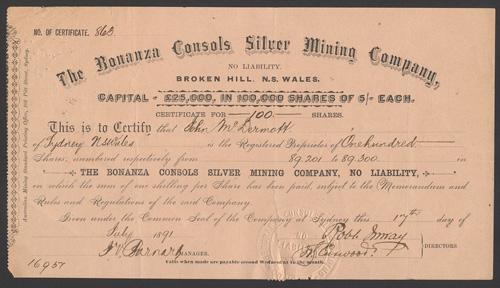 NO. OF CERTIFICATE. 863.
The Bonanza Consols Silver Mining Company,
NO LIABILITY.
BROKEN HILL. N.S. WALES.
CAPITAL - £25,000, IN 100,000 SHARES OF 5/- EACH.
CERTIFICATE FOR 100 SHARES.
This is to Certify that John McDermott
of Sydney N.S. Wales is the Registered Proprietor of One Hundred
Shares, numbered respectively from 89201 to 89300 in
THE BONANZA CONSOLS SILVER MINING COMPANY, NO LIABILITY,
on which the sum of one shilling per Share has been paid, subject to the Memorandum and
Rules and Regulations of the said Company.
Given under the Common Seal of the Company at Sydney this 17th day of
July 1891
MANAGER.
DIRECTORS
Calls when made are payable second Wednesday in the month.
16951
Australian Mining Standard Printing Office, Pitt Street, Sydney.